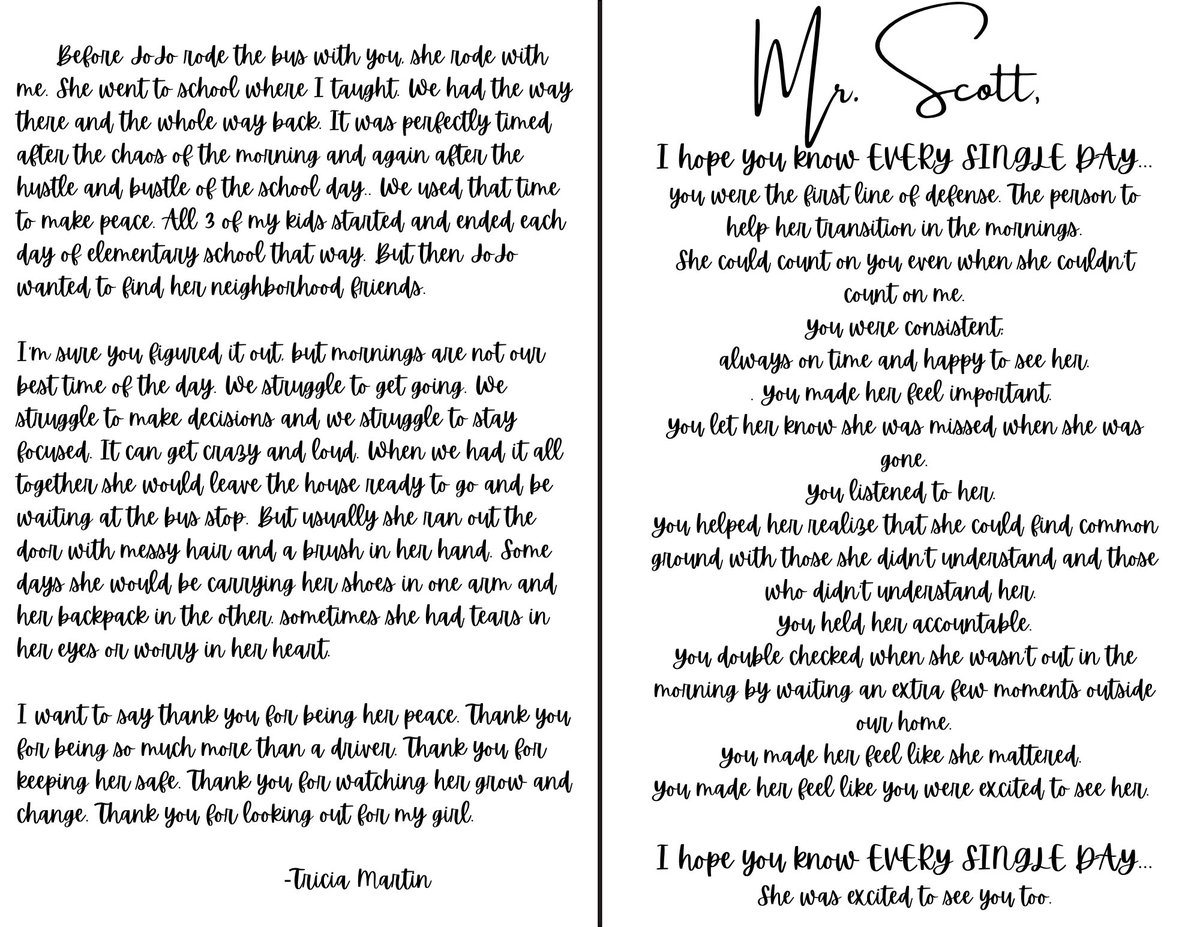 Before JoJo rode the bus with you, she rode with
me. She went to school where I taught. We had the way
there and the whole way back. It was perfectly timed
after the chaos of the morning and again after the
hustle and bustle of the school day.. We used that time
to make peace. All 3 of my kids started and ended each
day of elementary school that way. But then JoJo
wanted to find her neighborhood friends.
I'm sure you figured it out, but mornings are not our
best time of the day. We struggle to get going. We
struggle to make decisions and we struggle to stay
focused. It can get crazy and loud. When we had it all
together she would leave the house ready to go and be
waiting at the bus stop. But usually she ran out the
door with messy hair and a brush in her hand. Some
days she would be carrying her shoes in one arm and
her backpack in the other. sometimes she had tears in
her eyes or worry in her heart.
I want to say thank you for being her peace. Thank you
for being so much more than a driver. Thank you for
keeping her safe. Thank you for watching her grow and
change. Thank you for looking out for my girl.
-Tricia Martin
Mr. Scott,
I hope you know EVERY SINGLE DAY...
You were the first line of defense. The person to
help her transition in the mornings.
She could count on you even when she couldn't
count on me.
You were consistent;
always on time and happy to see her.
. You made her feel important.
You let her know she was missed when she was
gone.
You listened to her.
You helped her realize that she could find common
ground with those she didn't understand and those
who didn't understand her.
You held her accountable.
You double checked when she wasn't out in the
morning by waiting an extra few moments outside
our home.
You made her feel like she mattered.
You made her feel like you were excited to see her.
I hope you know EVERY SINGLE DAY...
She was excited to see you too.